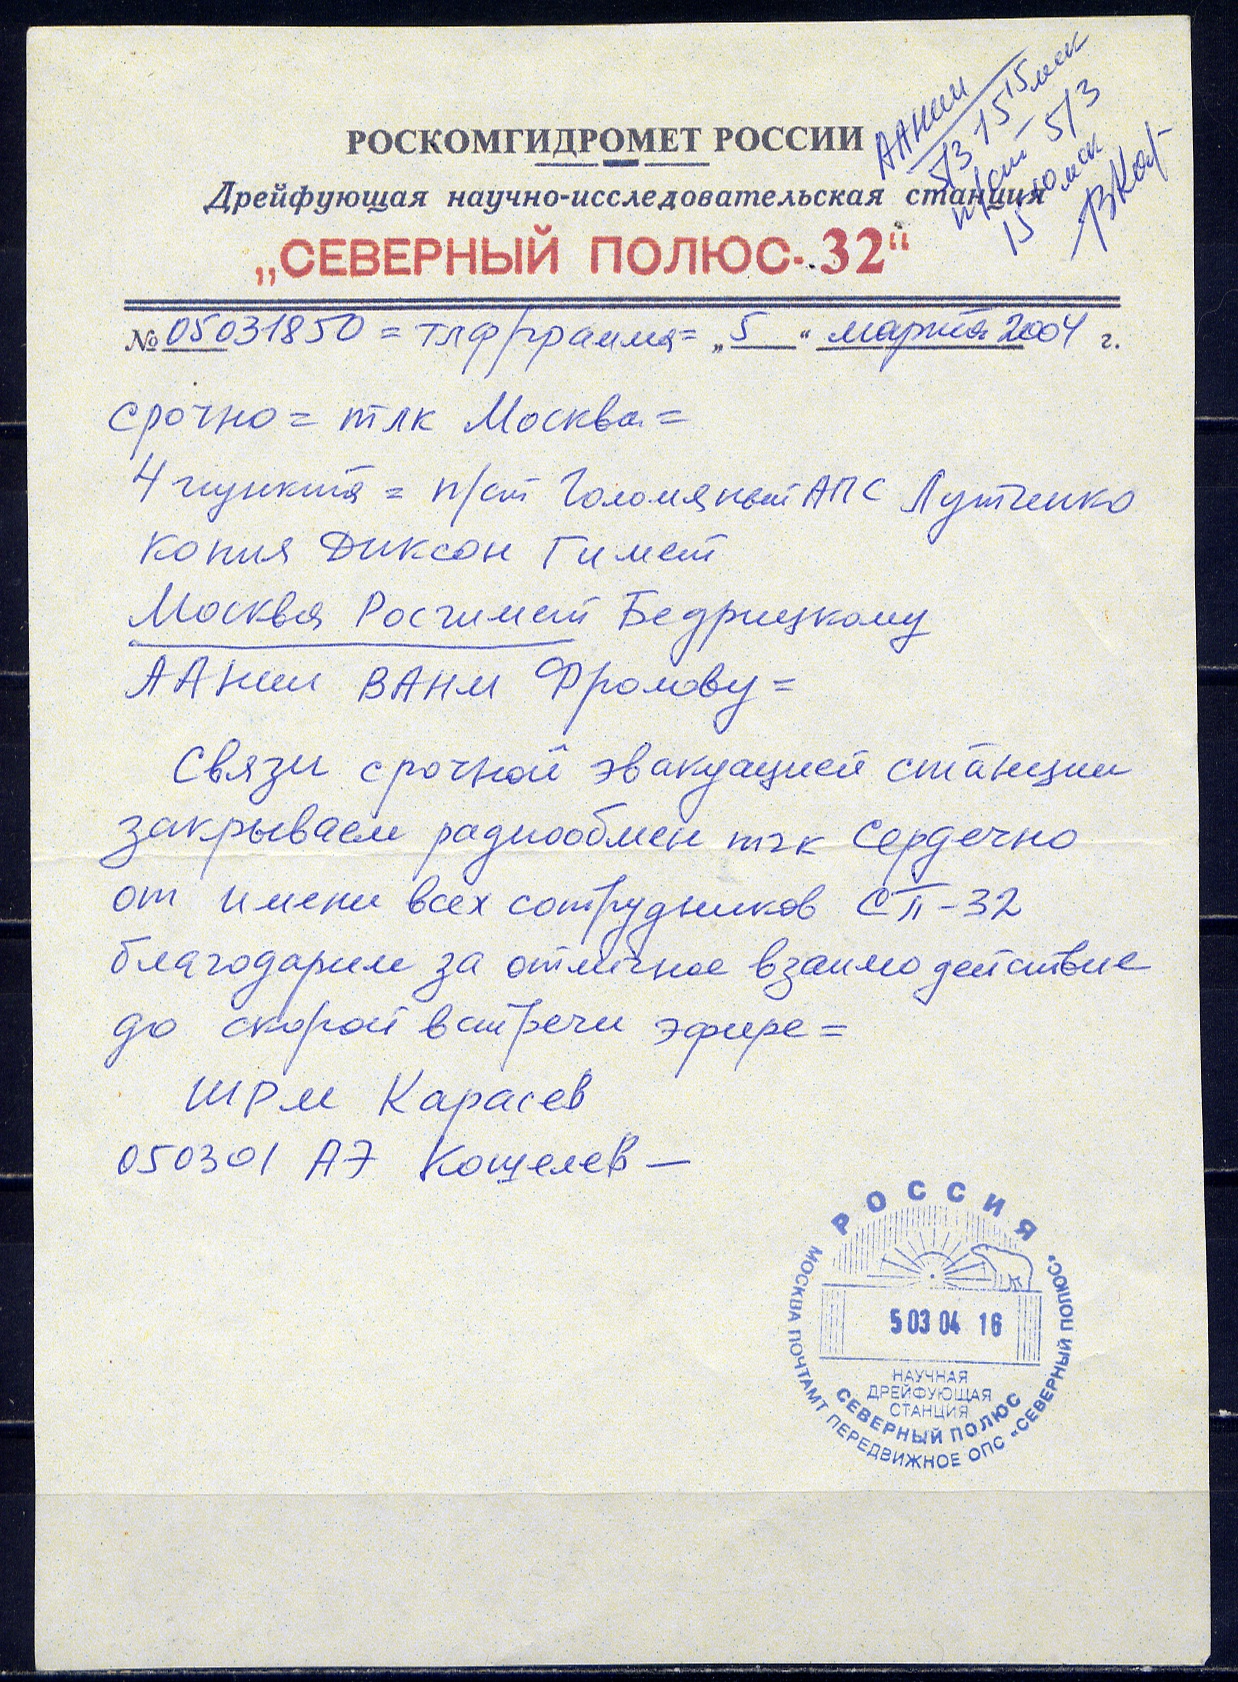 РОСКОМГИДРОМЕТ РОССИИ
Дрейфующая научно-исследовательская станция
„СЕВЕРНЫЙ ПОЛЮС-32“
ААНИИ
5/3 15 15 мск
п/ст 5/3
15 мск
№ 05031850 = тлф/грамма = „5“ марта 2004 г.
срочно = тлк Москва =
4 пункта = п/ст Голомяный АПС Лутченко
копия Диксон Гимет
Москва Росгимет Бедрицкому
ААНИИ ВАНМ Фролову =
Связи срочной эвакуацией станции
закрываем радиообмен тчк Сердечно
от имени всех сотрудников СП-32
благодарим за отличное взаимодействие
до скорой встречи эфире =
ШРМ Карасев
050301 АЭ Кошелев —
РОССИЯ
5 03 04 16
НАУЧНАЯ
ДРЕЙФУЮЩАЯ
СТАНЦИЯ
СЕВЕРНЫЙ ПОЛЮС
МОСКВА ПОЧТАМТ ПЕРЕДВИЖНОЕ ОПС «СЕВЕРНЫЙ ПОЛЮС»